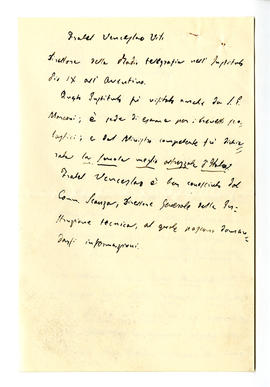 Fratel Venceslao Viti
Direttore della Radio telegrafia nell'Instituto
Pio IX all'Aventino.
Questo Instituto fu visitato anche da S. E.
Marconi; è sede di esame per i brevetti
e dal Ministro competente fu dichia-
rata la scuola meglio attrezzata d'Italia.
Fratel Venceslao è ben conosciuto dal
Comm. Scanga, Direttore Generale della In-
struzione tecnica, al quale possono doman-
darsi informazioni.